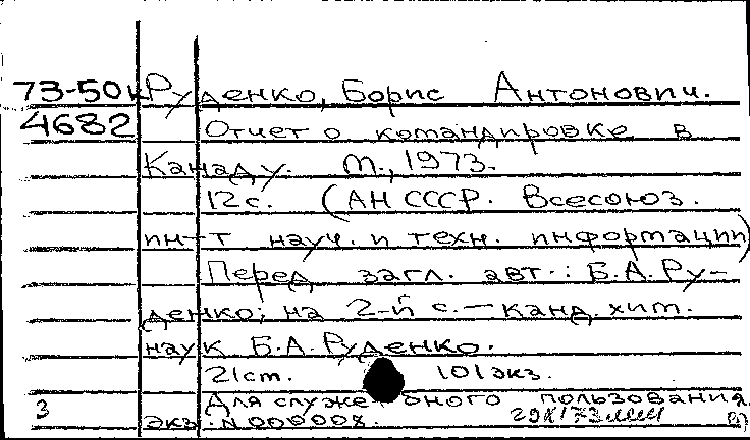 73-50к Руденко, Борис Антонович.
4682 Отчет о командировке в
Канаду. М., 1973.
12 с. (АН СССР. Всесоюз.
ин-т науч. и техн. информации)
Перед загл. авт.: Б.А. Ру-
денко; на 2-й с. — канд. хим.
наук Б.А. Руденко.
21 см. 101 экз.
Для служебного пользования
3 экз. N 000008.